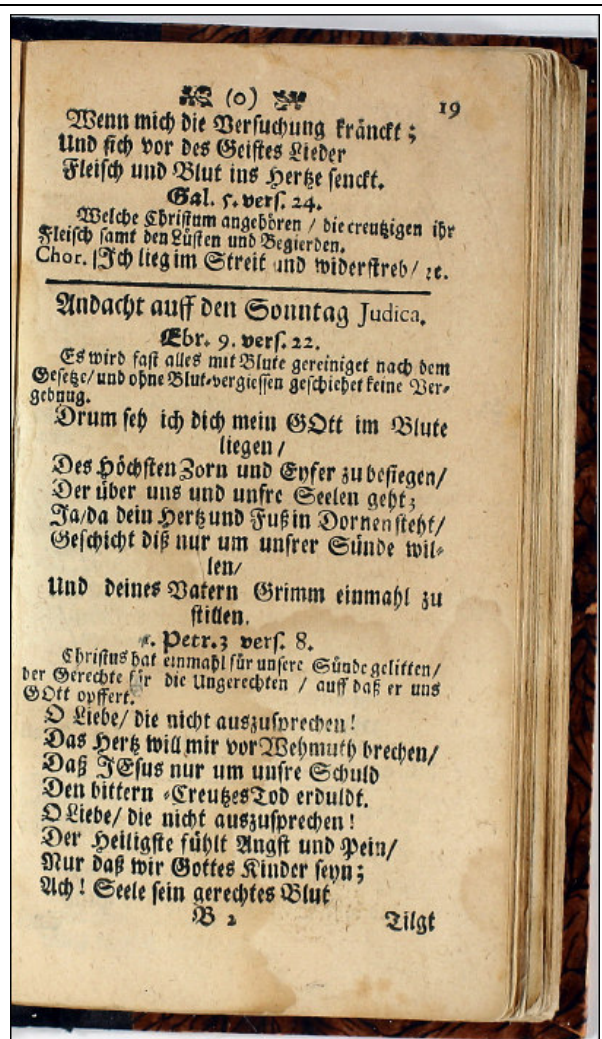 (o) 19
Wenn mich die Versuchung kränckt;
Und sich vor des Geistes Lieder
Fleisch und Blut ins Hertze senckt.
Gal. 5. vers. 24.
Welche Christum angehören / die creutzigen ihr
Fleisch samt den Lüsten und Begierden.
Chor. Ich lieg im Streit und widerstreb / ꝛc.
Andacht auff den Sonntag Judica.
Ebr. 9. vers. 22.
Es wird fast alles mit Blute gereiniget nach dem
Gesetze / und ohne Blut-vergiessen geschiehet keine Ver-
gebnug.
Drum seh ich dich mein GOtt im Blute
liegen /
Des Höchsten Zorn und Eyfer zu besiegen /
Der über uns und unsre Seelen geht;
Ja / da dein Hertz und Fuß in Dornen steht /
Geschicht diß nur um unsrer Sünde wil-
len /
Und deines Vatern Grimm einmahl zu
stillen.
Petr. 3 vers. 8.
Christus hat einmahl für unsere Sünde gelitten /
der Gerechte für die Ungerechten / auff daß er uns
GOtt opffert.
O Liebe / die nicht auszusprechen!
Das Hertz will mir vor Wehmuth brechen /
Daß JEsus nur um unsre Schuld
Den bittern -Creutzes Tod erduldt.
O Liebe / die nicht auszusprechen!
Der Heiligste fühlt Angst und Pein /
Nur daß wir Gottes Kinder seyn;
Ach! Seele sein gerechtes Blut
B 2 Tilgt